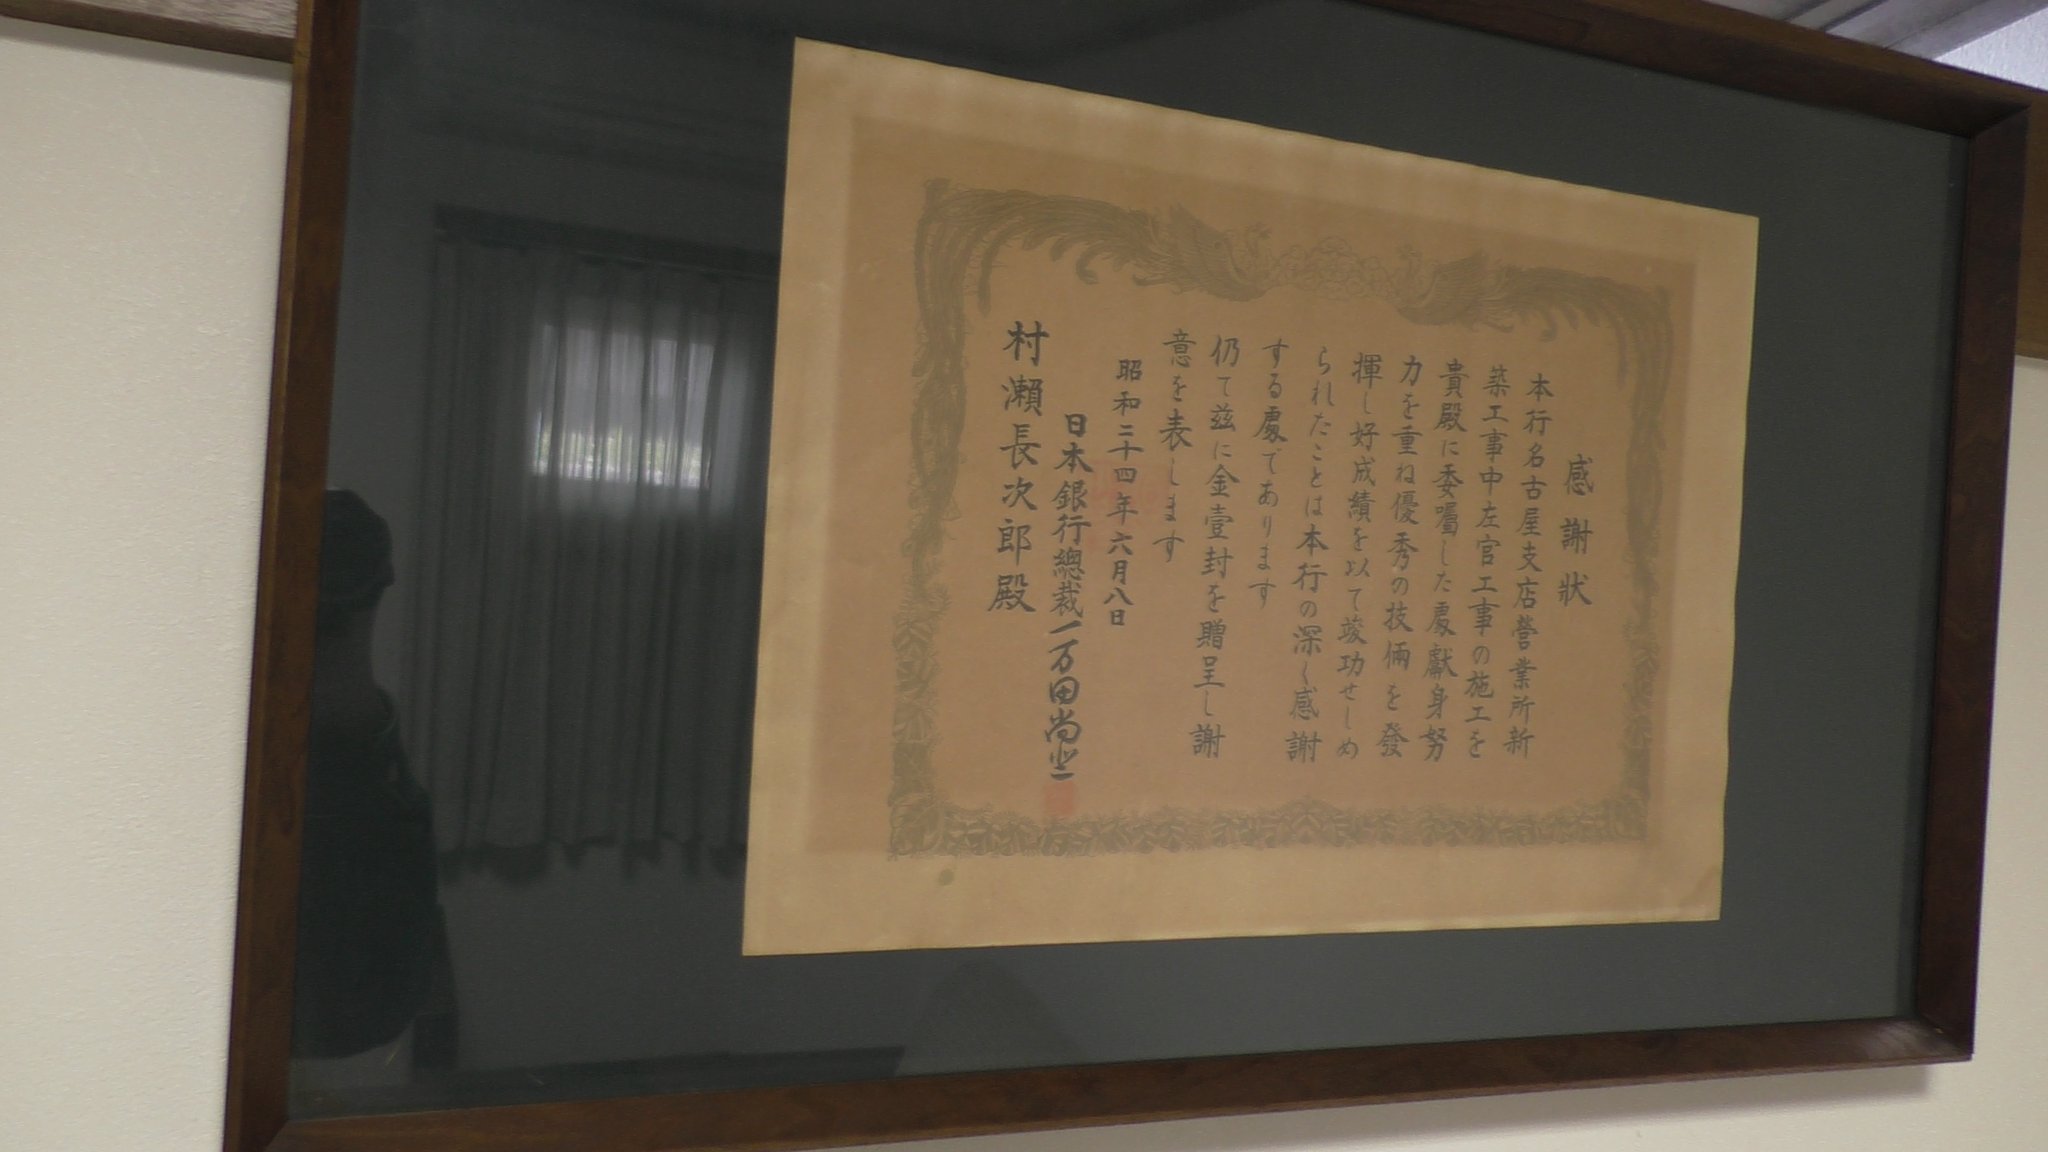 感謝狀
本行名古屋支店營業所新
築工事中左官工事の施工を
貴殿に委囑した處獻身努
力を重ね優秀の技倆を發
揮し好成績を以て竣功せしめ
られたことは本行の深く感謝
する處であります
仍て茲に金壹封を贈呈し謝
意を表します
昭和二十四年六月八日
日本銀行總裁一万田尚登
村瀨長次郎殿